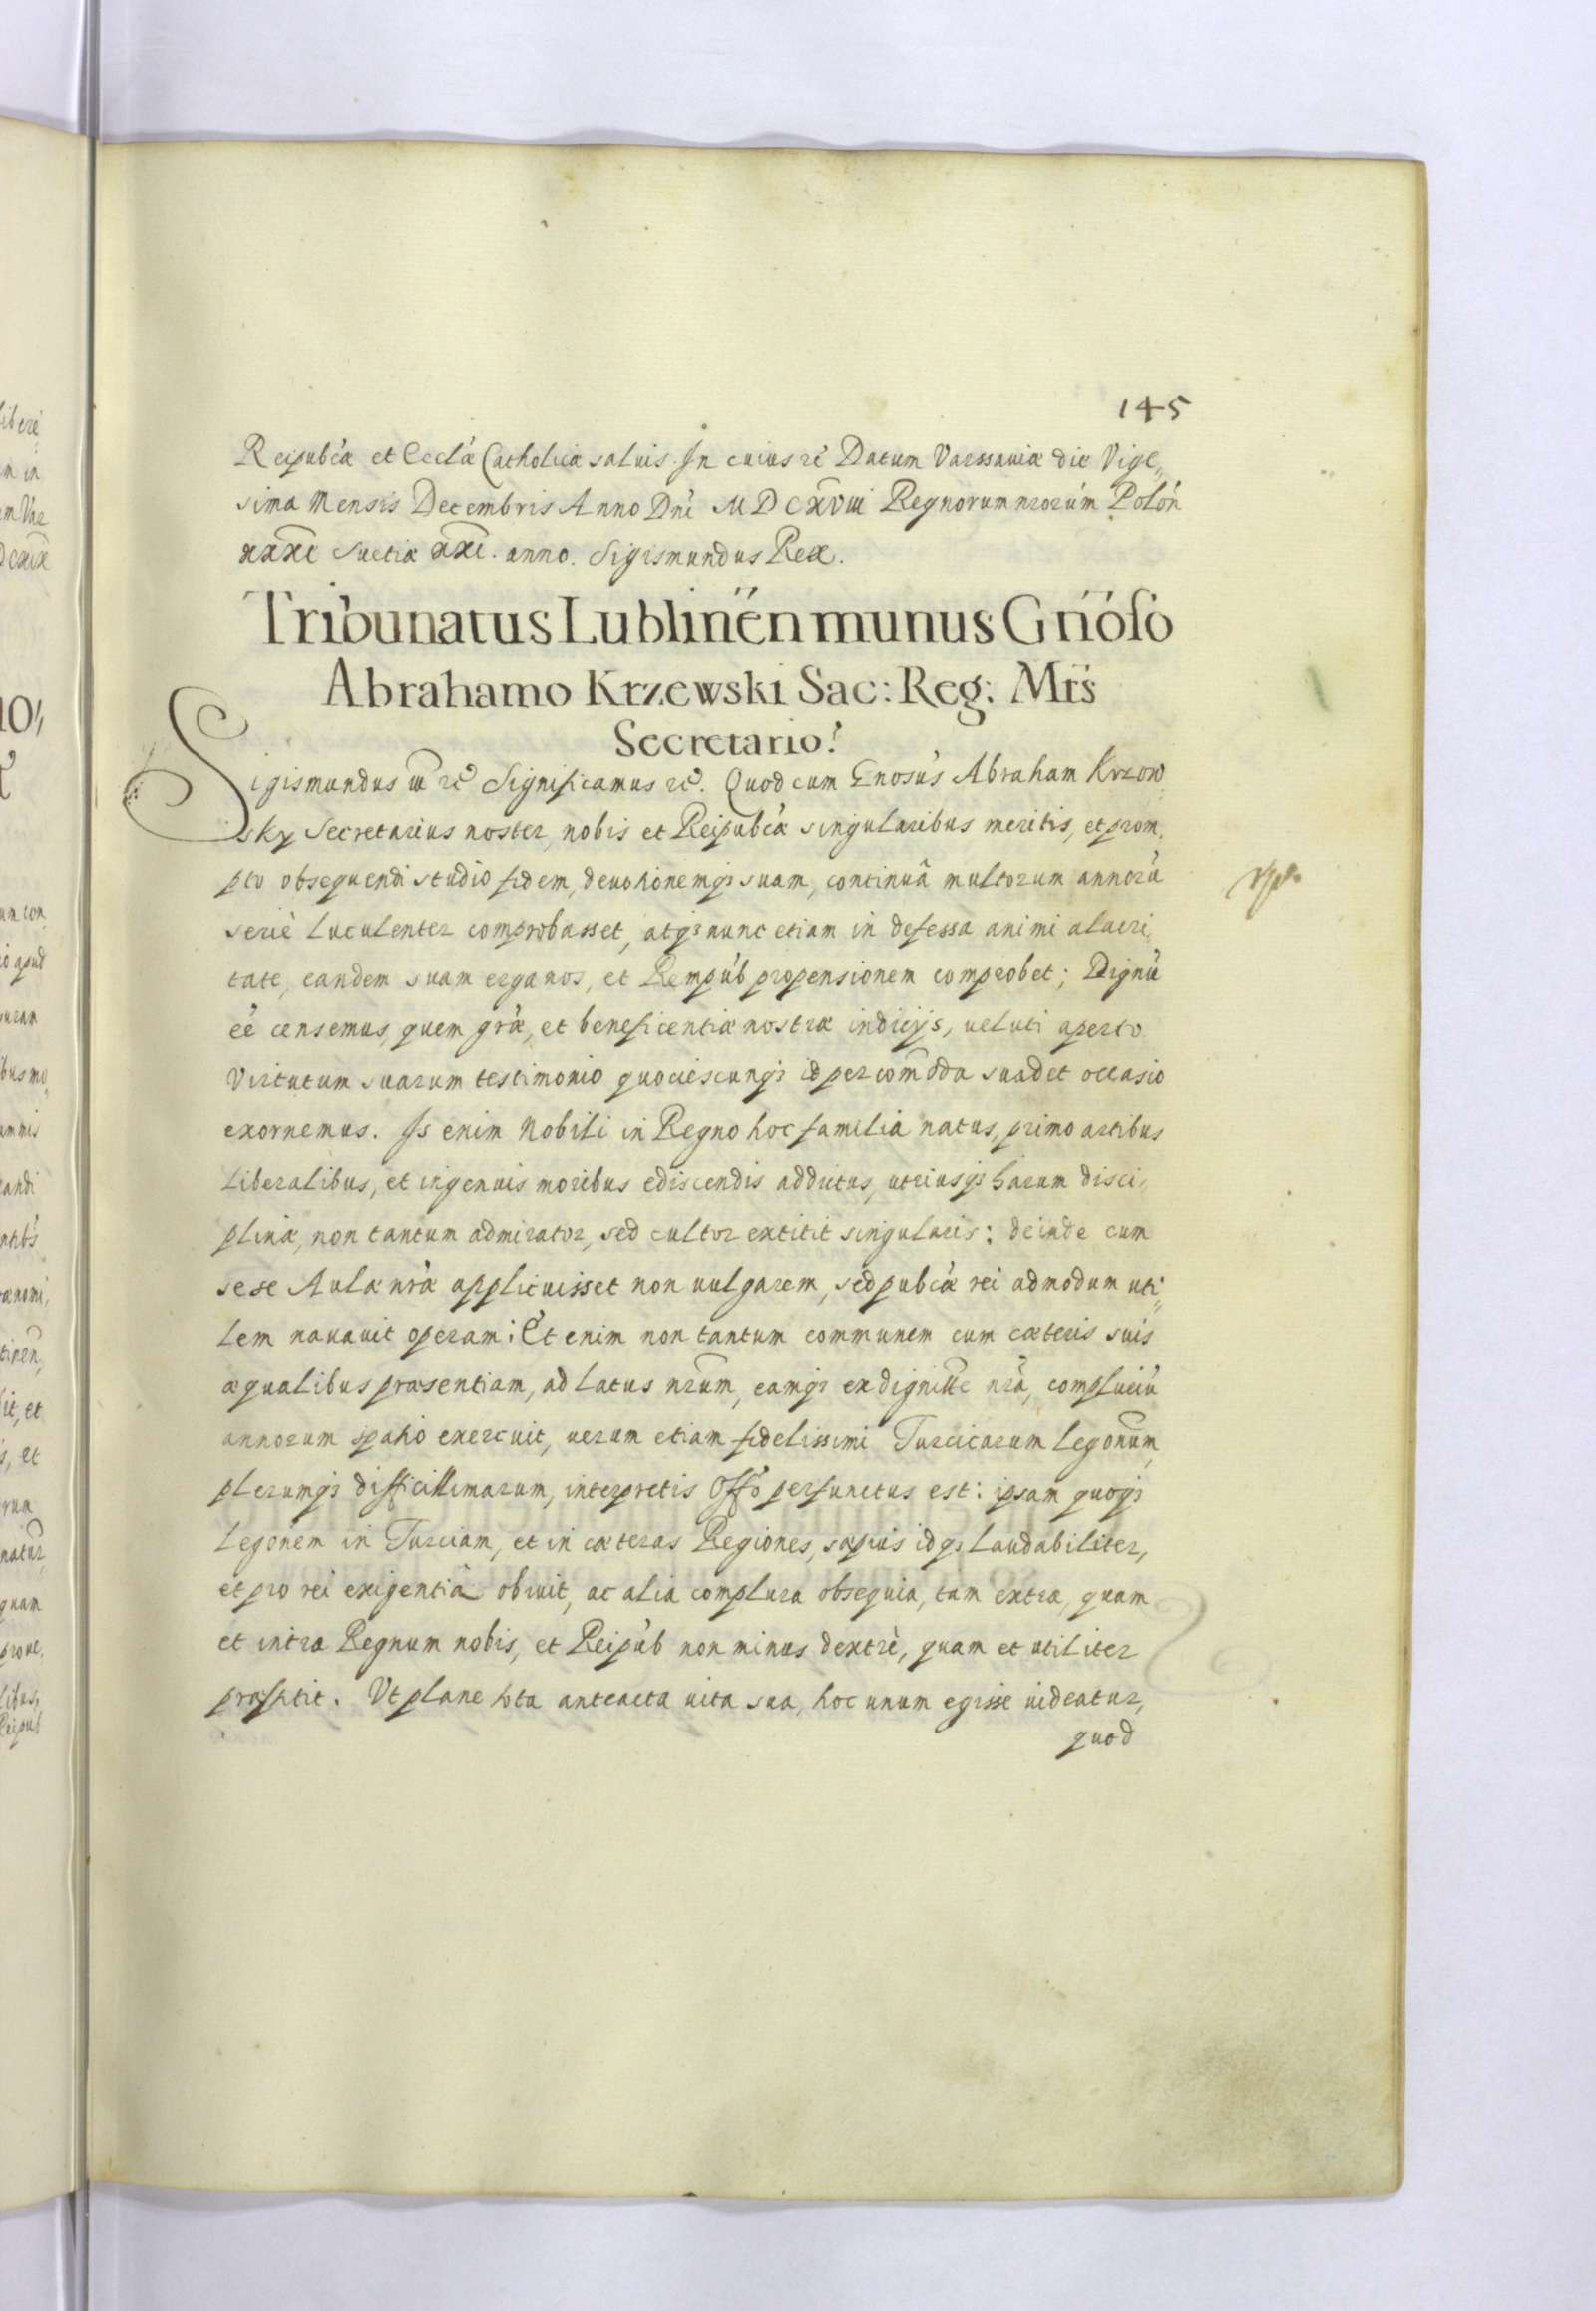 145
Reipubca et Eccla Catholica salvis. In cuius rc Datum Varssavia die Vige,,
sima Mensis Decembris Anno Dni MDCXVIII Regnorum nrorum Polon
XXXI Suetia XXI. anno. Sigismundus Rex.
Tribunatus Lublinen munus Gnoso
Abrahamo Krzewski Sac: Reg: Mtis
Secretario.
Sigismundus III rc Significamus rc. Quod cum Gnosus Abraham Krzow
sky Secretarius noster, nobis et Reipubca singularibus meritis, et prom,
pto obsequendi studio fidem, devotionemq suam, continuâ multorum annorũ
seriè luculenter comprobasset, atq nunc etiam in defessa animi alacri,
tate, eandem suam erga nos, et Rempub propensionem comprobet; Dignũ
eê censemus, quem gra, et beneficentia nostra indicijs, veluti aperto
virtutum suarum testimonio quociescunq id per com̃oda suadet occasio
exornemus. Is enim Nobili in Regno hoc familia natus, primo artibus
liberalibus, et ingenuis moribus ediscendis addictus, utriusq harum disci,
plina, non tantum admirator, sed cultor extitit singularis: deinde cum
sese Aula nra applicuisset non vulgarem, sed pubca rei admodum uti,,
lem navavit operam: Et enim non tantum communem cum cæteris suis
æqualibus præsentiam, ad latus nrum, eamq ex dignitte nra, compluriũ
annorum spatio exercuit, verum etiam fidelissimi Turcicarum legonum,
plerumq difficillimarum, interpretis offo perfunctus est: ipsam quoq
legonem in Turciam, et in cæteras Regiones, sæpius idq laudabiliter,
et pro rei exigentiâ obivit, ac alia complura obsequia, tam extra, quam
et intra Regnum nobis, et Reipub non minus dextrè, quam et utiliter
præstitit. Ut plane tota anteacta vita sua, hoc unum egisse videatur,
quod